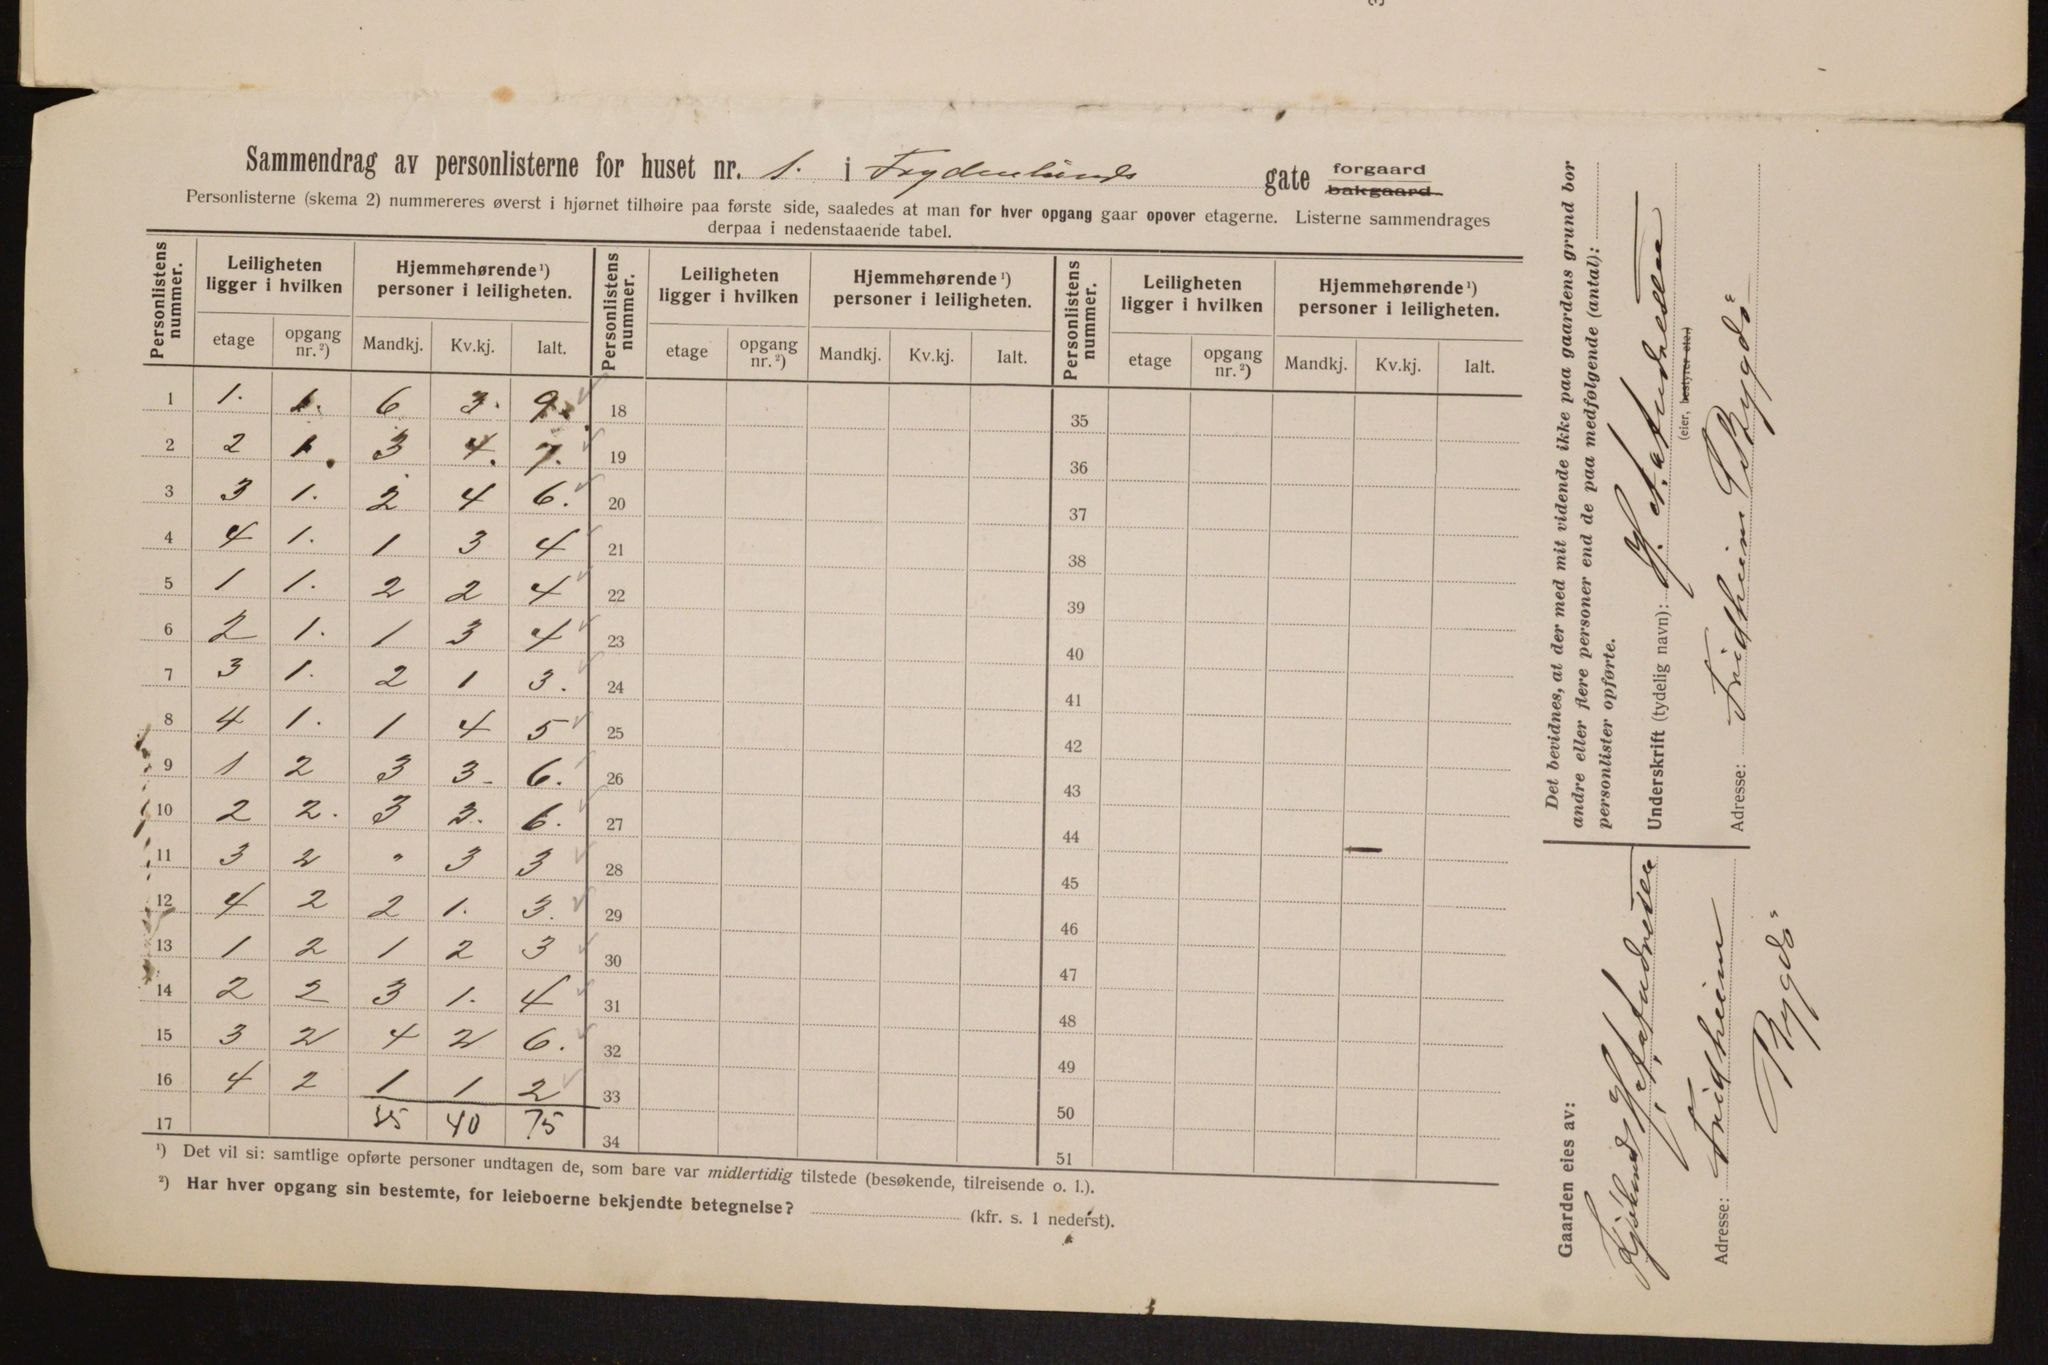 Sammendrag av personlisterne for huset nr. 1. i Frydenlunds gate forgaard bakgaard.
Personlisterne (skema 2) nummereres øverst i hjørnet tilhøire paa første side, saaledes at man for hver opgang gaar opover etagerne. Listerne sammendrages
derpaa i nedenstaaende tabel.
Personlistens nummer. Leiligheten ligger i hvilken Hjemmehørende¹) personer i leiligheten. Personlistens nummer. Leiligheten ligger i hvilken Hjemmehørende¹) personer i leiligheten. Personlistens nummer. Leiligheten ligger i hvilken Hjemmehørende¹) personer i leiligheten.
etage opgang nr.²) Mandkj. Kv.kj. Ialt. etage opgang nr.²) Mandkj. Kv.kj. Ialt. etage opgang nr.²) Mandkj. Kv.kj. Ialt.
1 1. 1. 6 3. 9. 18 35
2 2 1. 3 4. 7. 19 36
3 3 1. 2 4 6. 20 37
4 4 1. 1 3 4 21 38
5 1 1. 2 2 4 22 39
6 2 1. 1 3 4 23 40
7 3 1. 2 1 3. 24 41
8 4 1. 1 4 5 25 42
9 1 2 3 3- 6. 26 43
10 2 2. 3 3. 6. 27 44
11 3 2 " 3 3 28 45
12 4 2 2 1. 3. 29 46
13 1 2 1 2 3 30 47
14 2 2 3 1. 4 31 48
15 3 2 4 2 6. 32 49
16 4 2 1 1 2 33 50
17 35 40 75 34 51
¹) Det vil si: samtlige opførte personer undtagen de, som bare var midlertidig tilstede (besøkende, tilreisende o. l.).
²) Har hver opgang sin bestemte, for leieboerne bekjendte betegnelse? (kfr. s. 1 nederst).
Det bevidnes, at der med mit vidende ikke paa gaardens grund bor
andre eller flere personer end de paa medfølgende (antal):
personlister opførte.
Underskrift (tydelig navn): H. A. Andresen
(eier, bestyrer etc.)
Adresse: Fridheim Bygdö
Gaarden eies av:
H. A. Andresen
Adresse: Fridheim
Bygdö